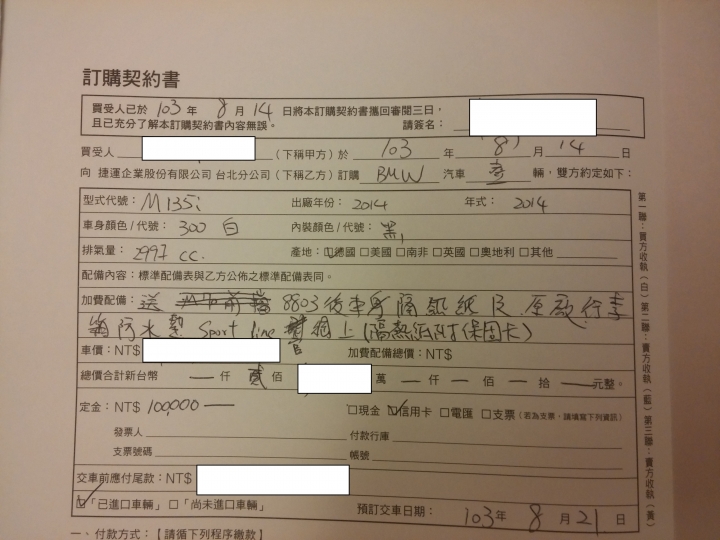 訂購契約書
買受人已於 103 年 8 月 14 日將本訂購契約書攜回審閱三日，
且已充分了解本訂購契約書內容無誤。 請簽名：
買受人 （下稱甲方）於 103 年 8 月 14 日
向 捷運企業股份有限公司 台北分公司（下稱乙方）訂購 BMW 汽車 壹 輛，雙方約定如下：
型式代號： M135i 出廠年份： 2014 年式： 2014
車身顏色／代號： 300 白 內裝顏色／代號： 黑
排氣量： 2997 cc. 產地：☑德國 □美國 □南非 □英國 □奧地利 □其他
配備內容：標準配備表與乙方公佈之標準配備表同。
加費配備： 送 8803後車身隔熱紙 原廠行李
防水墊 Sport line 網上（隔熱紙附保固卡）
車價：NT$ 加費配備總價：NT$
總價合計新台幣 — 仟 貳 佰 萬 — 仟 — 佰 — 拾 — 元整。
定金：NT$ 100,000 — □現金 ☑信用卡 □電匯 □支票（若為支票，請填寫下列資訊）
發票人 付款行庫
支票號碼 帳號
交車前應付尾款：NT$
☑「已進口車輛」 □「尚未進口車輛」 預訂交車日期： 103 年 8 月 21 日
一、付款方式：【請循下列程序繳款】
第一聯：賣方收執（白）第二聯：買方收執（藍）第三聯：賣方收執（黃）